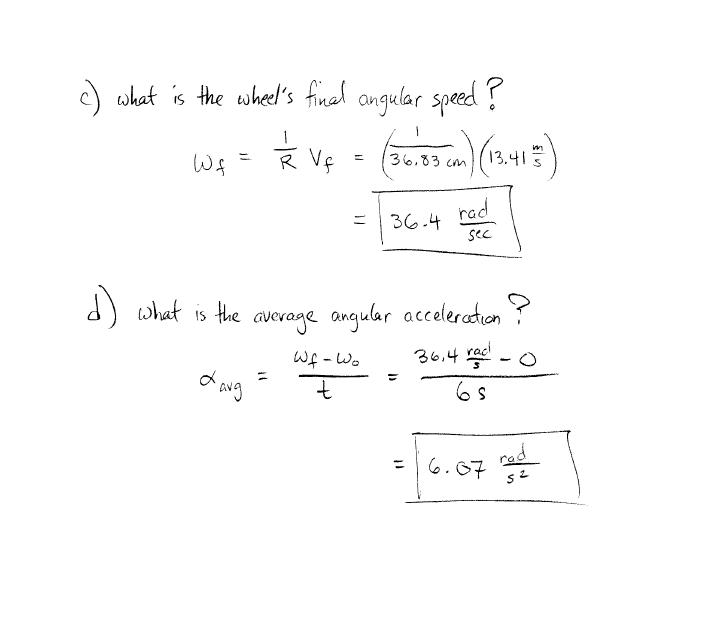 c) what is the wheel's final angular speed?
ωf = 1/R Vf = (1/36.83 cm)(13.41 m/s)
= 36.4 rad/sec
d) what is the average angular acceleration?
αavg = (ωf - ω0)/t = (36.4 rad/s - 0)/6 s
= 6.07 rad/s²